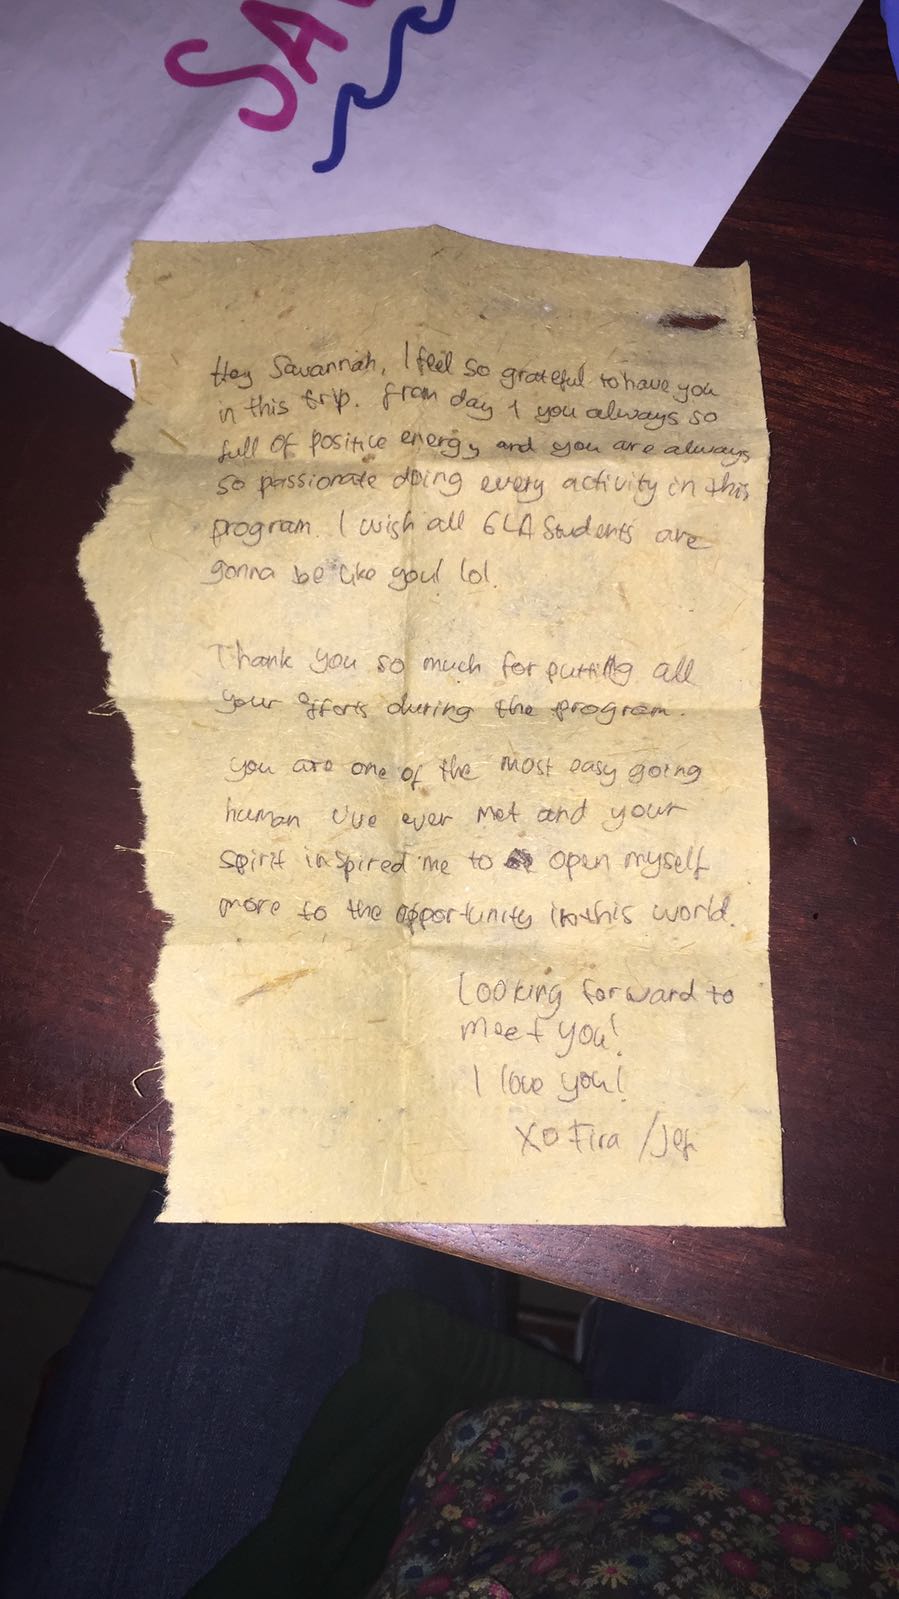 SAV
Hey Savannah, I feel so grateful to have you
in this trip. from day 1 you always so
full of positice energy and you are always
so passionate doing every activity in this
program. I wish all GLA Students are
gonna be like you! lol.
Thank you so much for putting all
your efforts during the program.
you are one of the most easy going
human i've ever met and your
spirit inspired me to open myself
more to the opportunity in this world.
Looking forward to
meet you!
I love you!
XO Fira /Jef